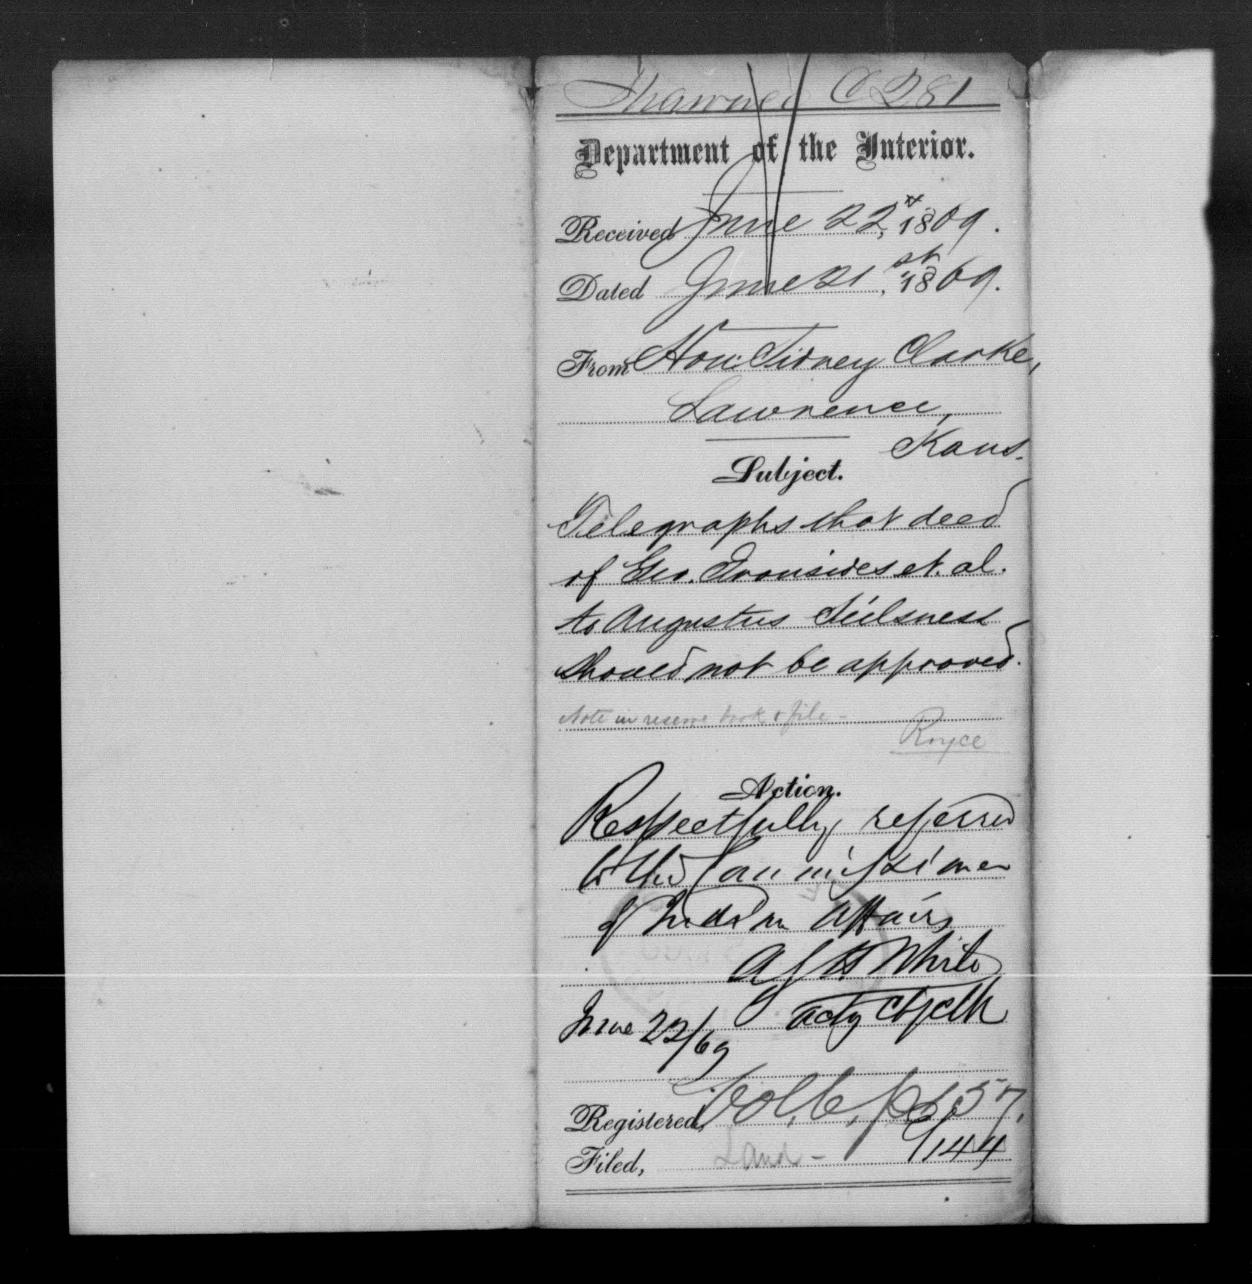 Shawnee C 281
Department of the Interior.
Received June 22, 1869.
Dated June 21st, 1869.
From Hon. Sidney Clarke,
Lawrence,
Kans.
Subject.
Telegraphs that deed
of Geo. Ironsides et. al.
to Augustus
should not be approved.
Note in reserve book & file -
Royce
Action.
Respectfully referred
to the Commissioner
of Indian Affairs
White
June 22/69 actg Ch clk
Registered, Vol. 6, p 157,
Filed, Land - 144